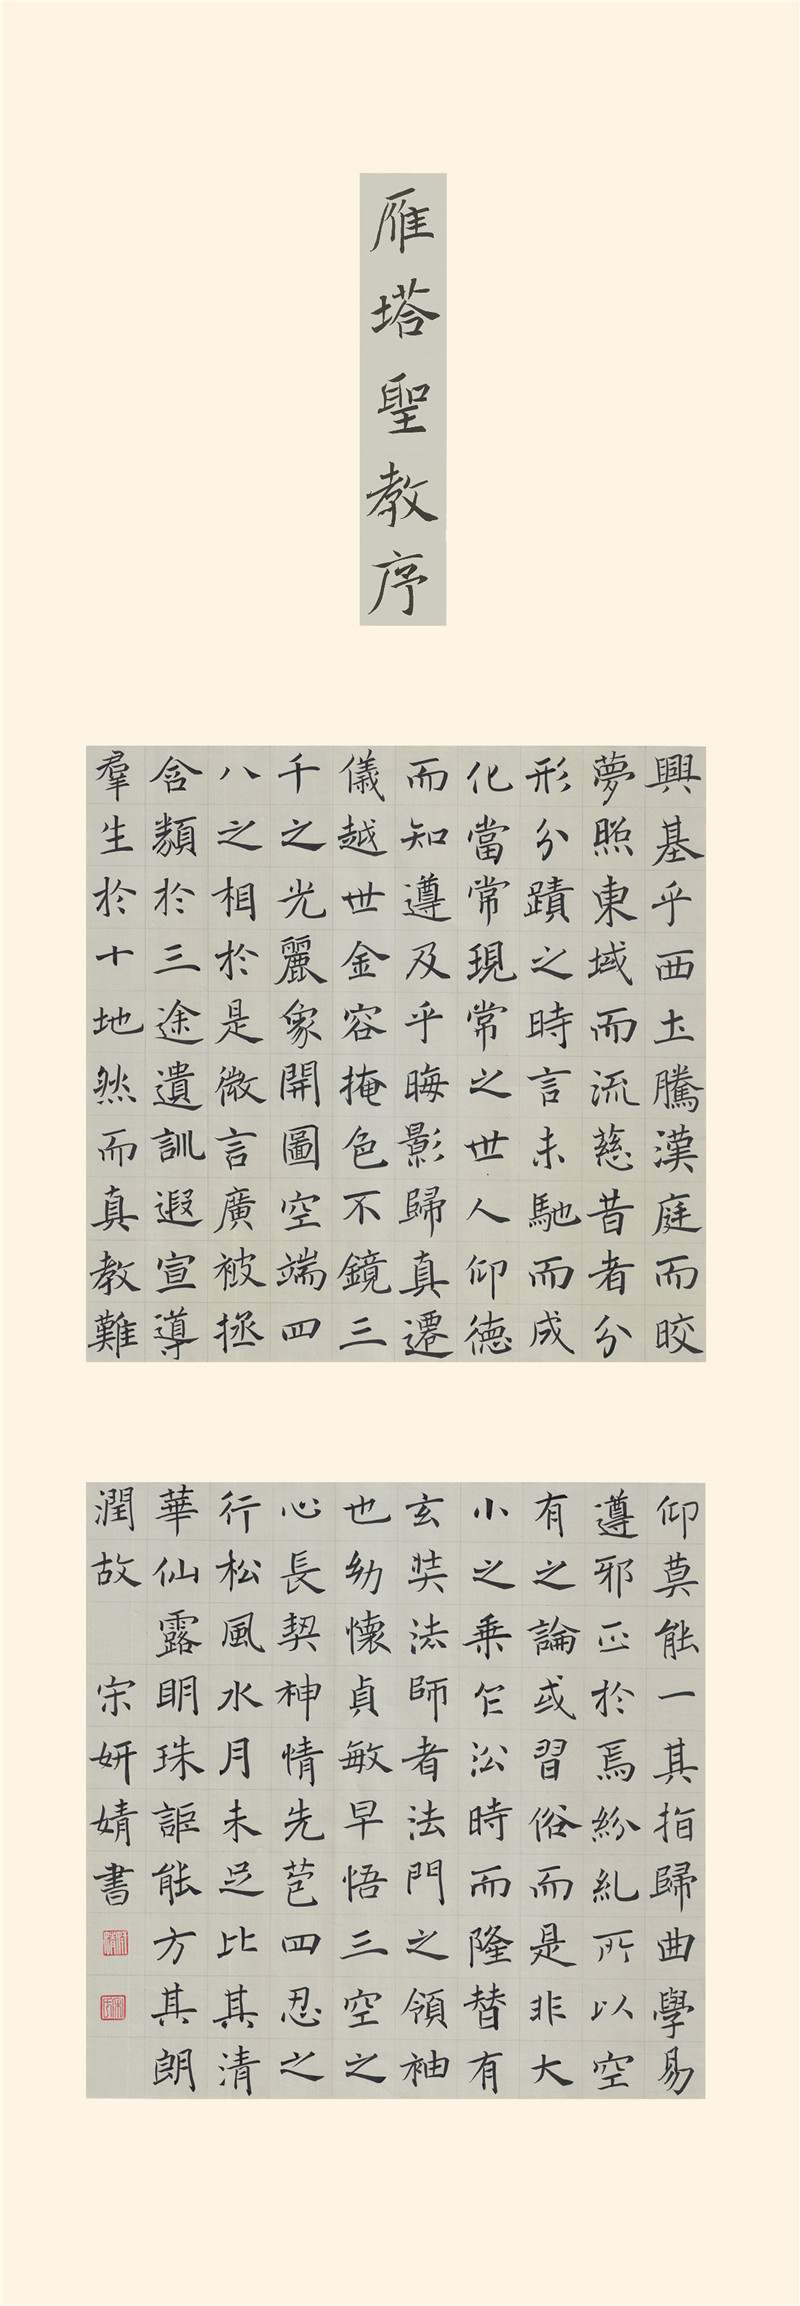 雁塔聖教序
興基乎西土騰漢庭而晈
夢照東域而流慈昔者分
形分蹟之時言未馳而成
化當常現常之世人仰德
而知遵及乎晦影歸真遷
儀越世金容掩色不鏡三
千之光麗象開圖空端四
八之相於是微言廣被拯
含類於三途遺訓遐宣導
羣生於十地然而真教難
仰莫能一其指歸曲學易
遵邪正於焉紛糺所以空
有之論或習俗而是非大
小之乘乍沿時而隆替有
玄奘法師者法門之領袖
也幼懷貞敏早悟三空之
心長契神情先苞四忍之
行松風水月未足比其清
華仙露明珠詎能方其朗
潤故 宋妍婧書